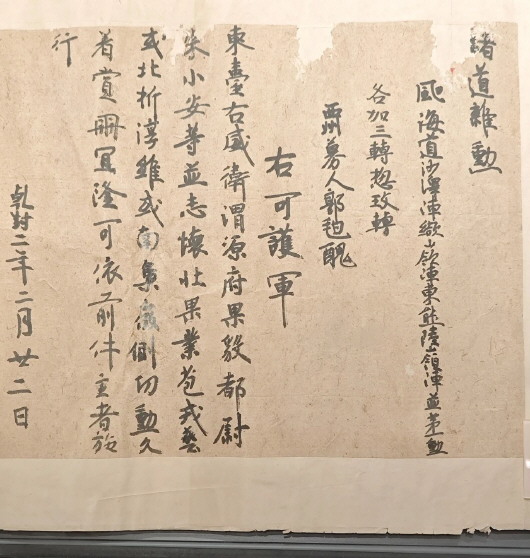 諸道雜勳
颰海道沙澤陣繳山嶺陣東熊陵嶺陣並第勳
各加三轉惣玖轉
西州募人郭㲠醜
右可護軍
東臺右威衛渭源府果毅都尉
朱小安等並志懷壯果業苞戎藝
或北折淳維或南梟徵側功勳久
著賞冊宜隆可依前件主者施
行
乹封二年二月廿二日